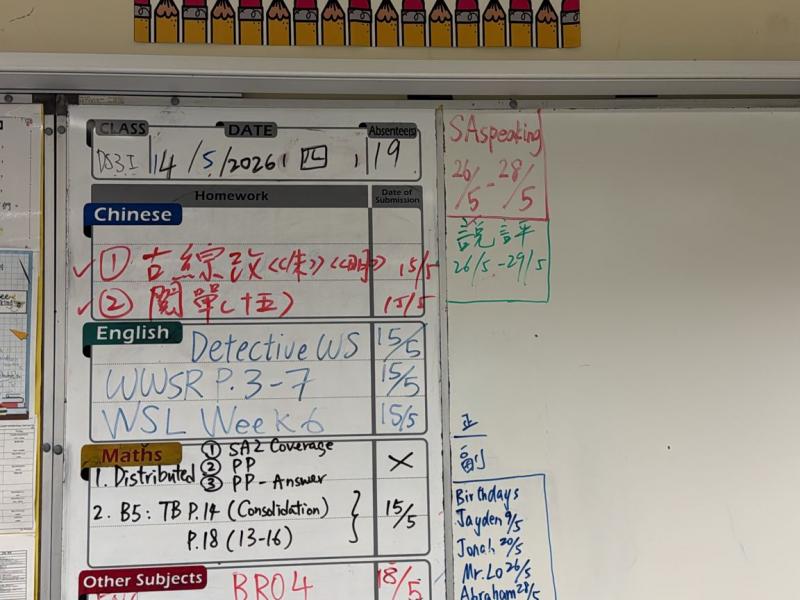 CLASS DATE Absentee(s)
14/5/2026 (四) 19
Homework Date of Submission
Chinese
① 古綜改 15/5
② 閱單(十五) 15/5
English
Detective WS 15/5
WWSR P.3-7 15/5
WSL Week 6 15/5
Maths
1. Distributed ① SA2 Coverage ×
② PP
③ PP-Answer
2. B5: TB P.14 (Consolidation) 15/5
P.18 (13-16)
Other Subjects
BR04 18/5
SA speaking
26/5 - 28/5
說評
26/5 - 29/5
正
副
Birthdays
Jayden 9/5
Jonah 20/5
Mr. Lo 26/5
Abraham 28/5